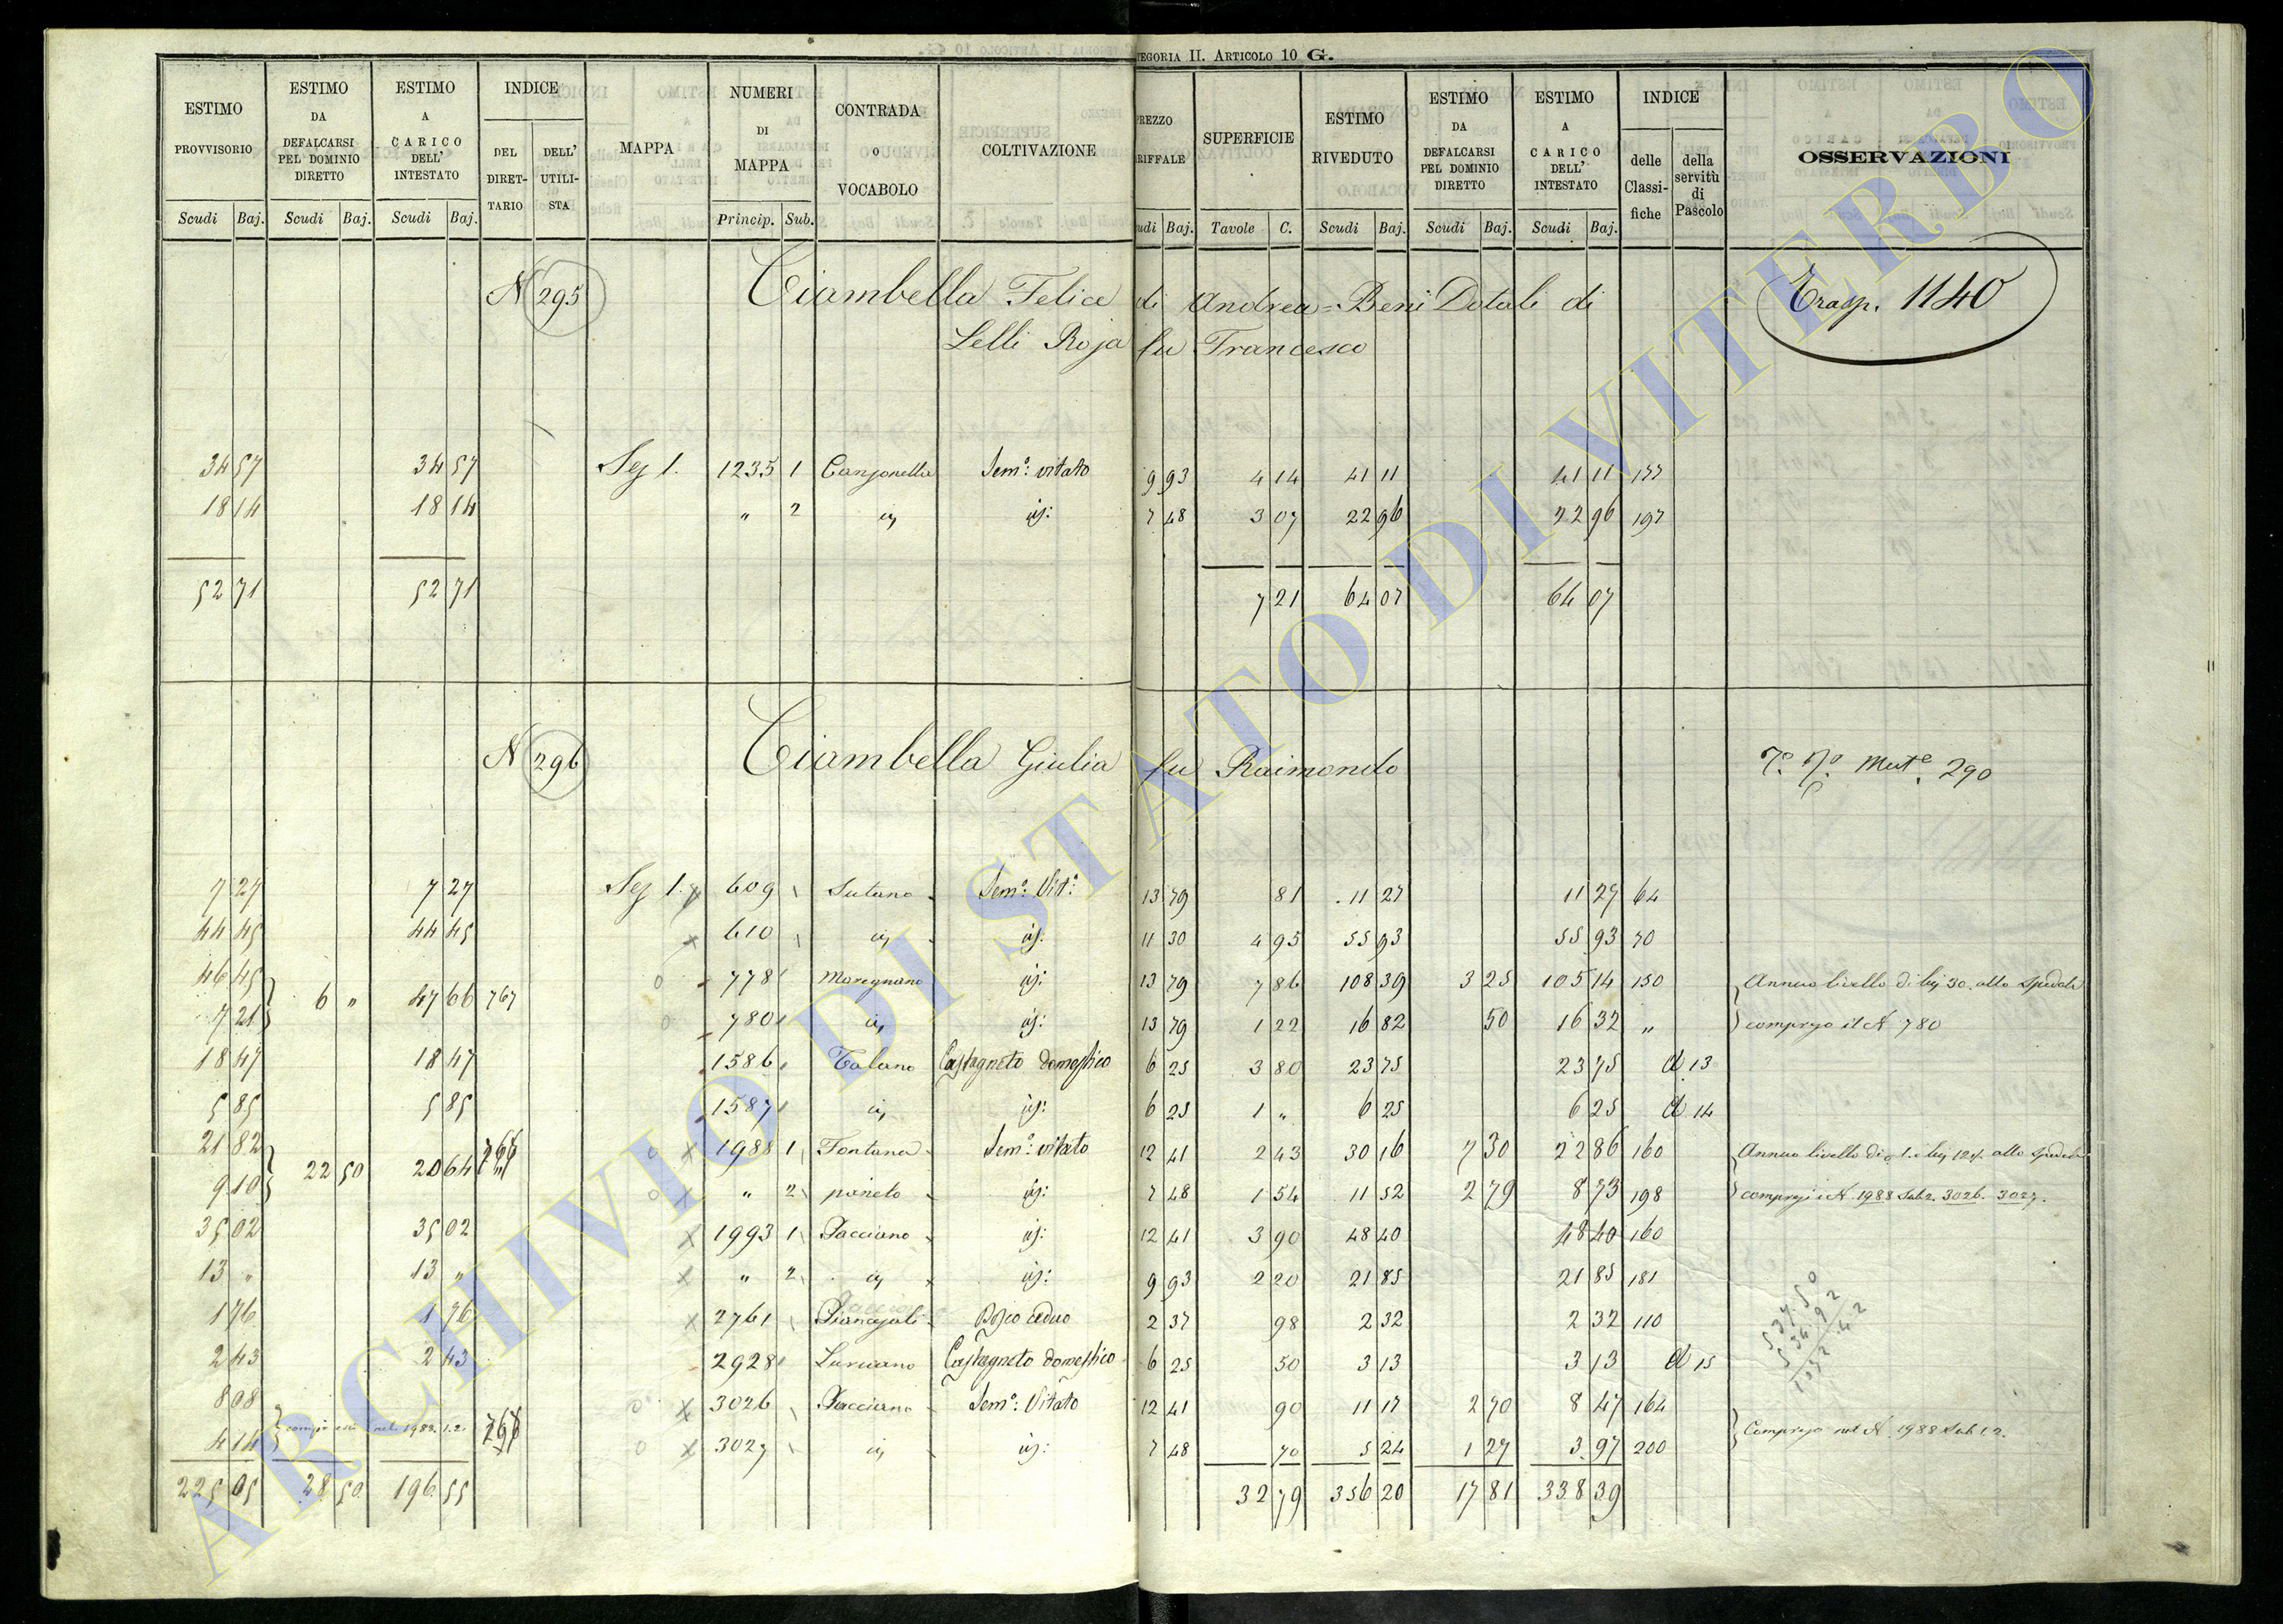 TEGORIA II. ARTICOLO 10 G.
ESTIMO PROVVISORIO Scudi Baj.
ESTIMO DA DEFALCARSI PEL DOMINIO DIRETTO Scudi Baj.
ESTIMO A CARICO DELL' INTESTATO Scudi Baj.
INDICE DEL DIRET-TARIO DELL' UTILI-STA
MAPPA
NUMERI DI MAPPA Princip. Sub.
CONTRADA O VOCABOLO
COLTIVAZIONE
REZZO RIFFALE udi Baj.
SUPERFICIE Tavole C.
ESTIMO RIVEDUTO Scudi Baj.
ESTIMO DA DEFALCARSI PEL DOMINIO DIRETTO Scudi Baj.
ESTIMO A CARICO DELL' INTESTATO Scudi Baj.
INDICE delle Classi-fiche della servitù di Pascolo
OSSERVAZIONI
N 295 Ciambella Felice di Andrea = Beni Dotali di Trasp. 1140
Lelli Rosa fu Francesco
34 57 34 57 Sez 1. 1235 1 Canzonella Sem.o vitato 9 93 4 14 41 11 41 11 177
18 14 18 14 " 2 id: 7 48 3 07 22 96 22 96 197
52 71 52 71 7 21 64 07 64 07
N 296 Ciambella Giulia fu Raimondo 290
7 27 7 27 Sez 1. x 609 Sutano Sem.o Vit.o 13 79 81 11 27 11 27 64
44 45 44 45 x 610 id: 11 30 4 95 55 93 55 93 70
46 45 6 " 47 66 767 o 778 Moregnano id: 13 79 7 86 108 39 3 25 105 14 150 Annuo livello di baj 30. allo Spedale
7 21 o 780 id: 13 79 1 22 16 82 50 16 32 " compreso il N 780
18 47 18 47 1586 Talano Castagneto domestico 6 25 3 80 23 75 23 75 d 13
5 85 5 85 1587 id: 6 25 1 " 6 25 6 25 d 14
21 82 22 50 20 64 o x 1988 1 Fontana Sem.o vitato 12 41 2 43 30 16 7 30 22 86 160 Annuo livello di allo Spedale
9 10 o x " 2 pianeto id: 7 48 1 54 11 52 2 79 8 73 198 compresi i N 1988 Sub 2. 3026. 3027.
35 02 35 02 x 1993 1 Pacciano id: 12 41 3 90 48 40 48 40 160
13 " 13 " x " 2 id: 9 93 2 20 21 85 21 85 181
1 76 1 76 x 2761 Bosco ceduo 2 37 98 2 32 2 32 110
2 43 2 43 2928 Luriano Castagneto domestico 6 25 50 3 13 3 13 d 15
8 08 o x 3026 Pacciano Sem.o Vitato 12 41 90 11 17 2 70 8 47 164
4 14 nel 1988. 1. 2. 768 o x 3027 id: 7 48 70 5 24 1 27 3 97 200 Compreso nel N 1988 Sub 1 2.
225 05 28 50 196 55 32 79 356 20 17 81 338 39
ARCHIVIO DI STATO DI VITERBO